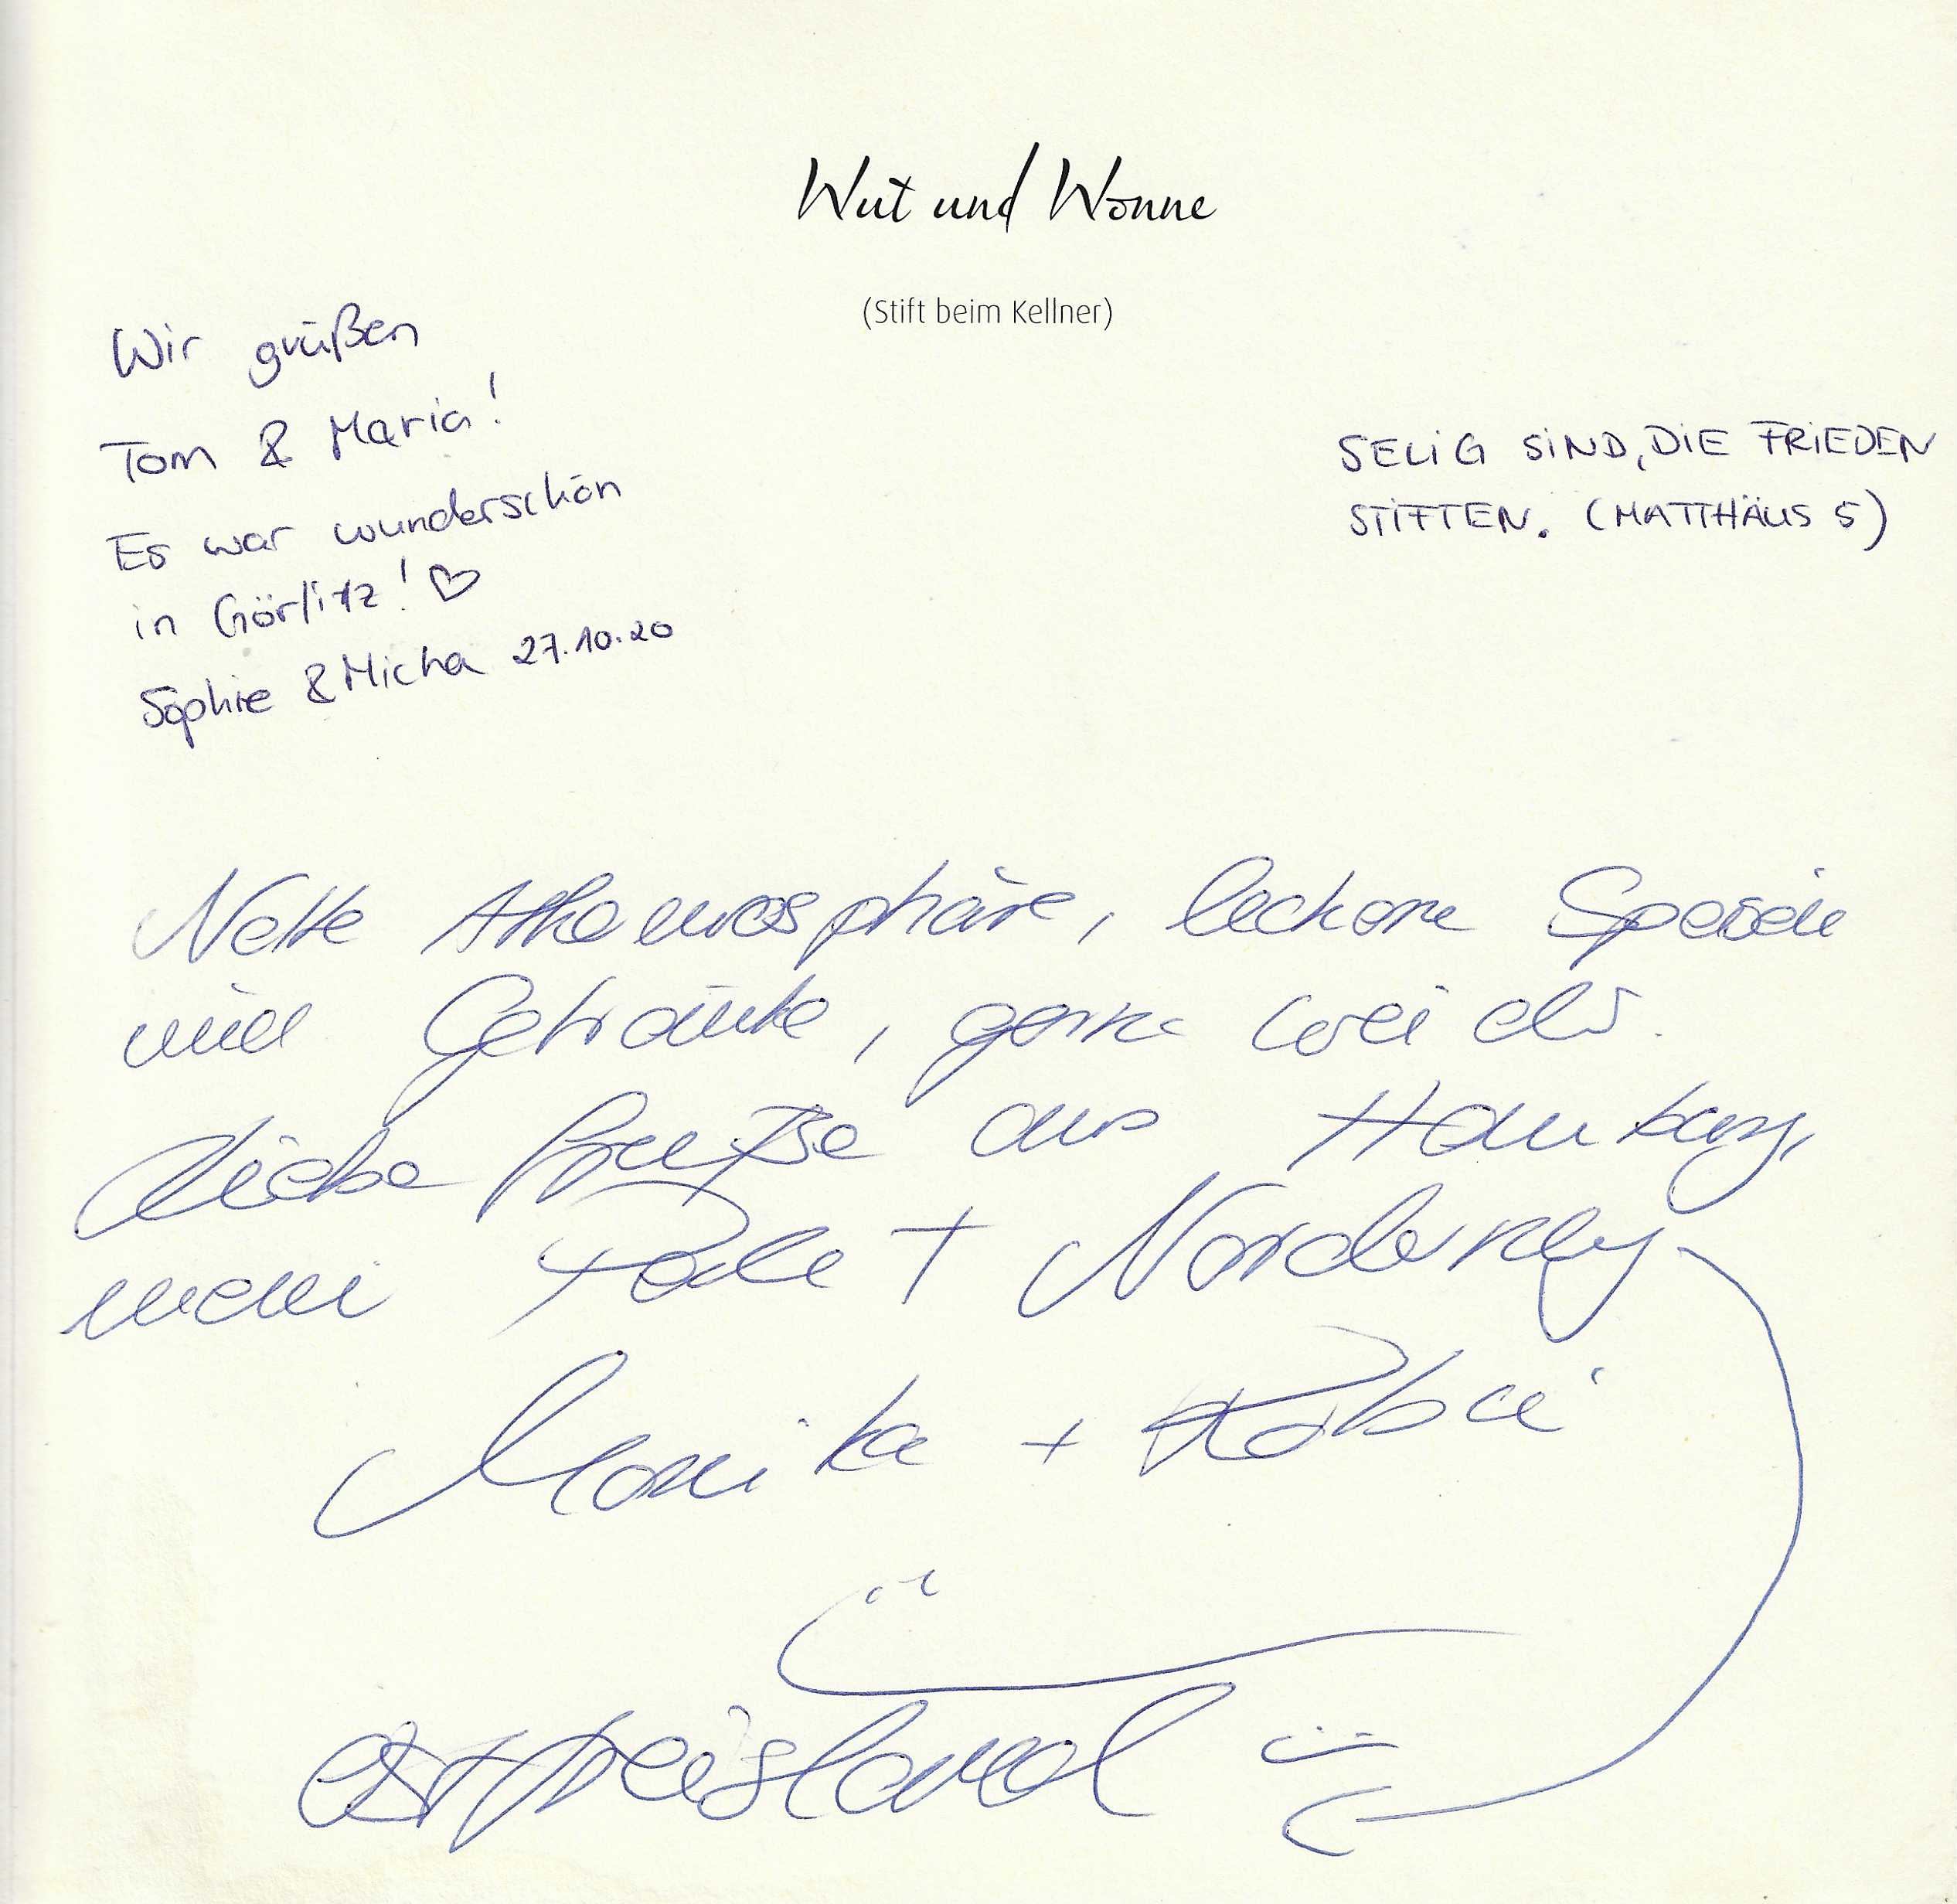 Wut und Wonne
(Stift beim Kellner)
Wir grüßen
Tom & Maria!
Es war wunderschön
in Görlitz! ♡
Sophie & Micha 27.10.20
SELiG SiND, DiE FRiEDEN
STiFTEN. (MATTHÄUS 5)
Nette Athomosphäre, leckere Speisen
und Getränke, gerne wieder.
Liebe Grüße aus Hamburg,
+ Norderney
Monika +
Ostfriesland